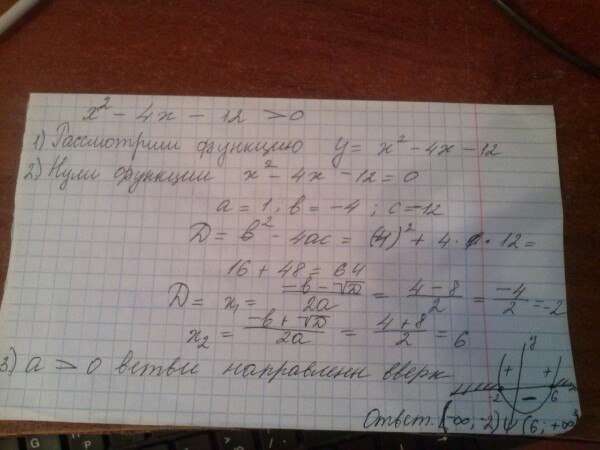 x² - 4x - 12 > 0
1) Рассмотрим функцию y = x² - 4x - 12
2) Нули функции x² - 4x - 12 = 0
a = 1; b = -4; c = -12
D = b² - 4ac = (-4)² + 4 · 1 · 12 =
16 + 48 = 64
D = x₁ = (-b - √D)/2a = (4 - 8)/2 = -4/2 = -2
x₂ = (-b + √D)/2a = (4 + 8)/2 = 6
3) a > 0 ветви направлени вверх
y
+ +
-2 - 6 x
Ответ: (-∞; -2) ∪ (6; +∞)